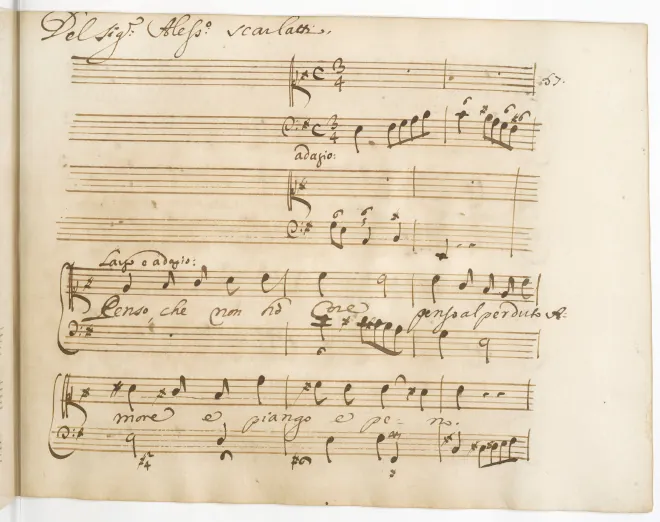 Del Sigr. Alesso. Scarlatti.
57.
adagio:
Largo e adagio:
Penso, che non hò Core penso al perduto A-
more e piango e pe- no.